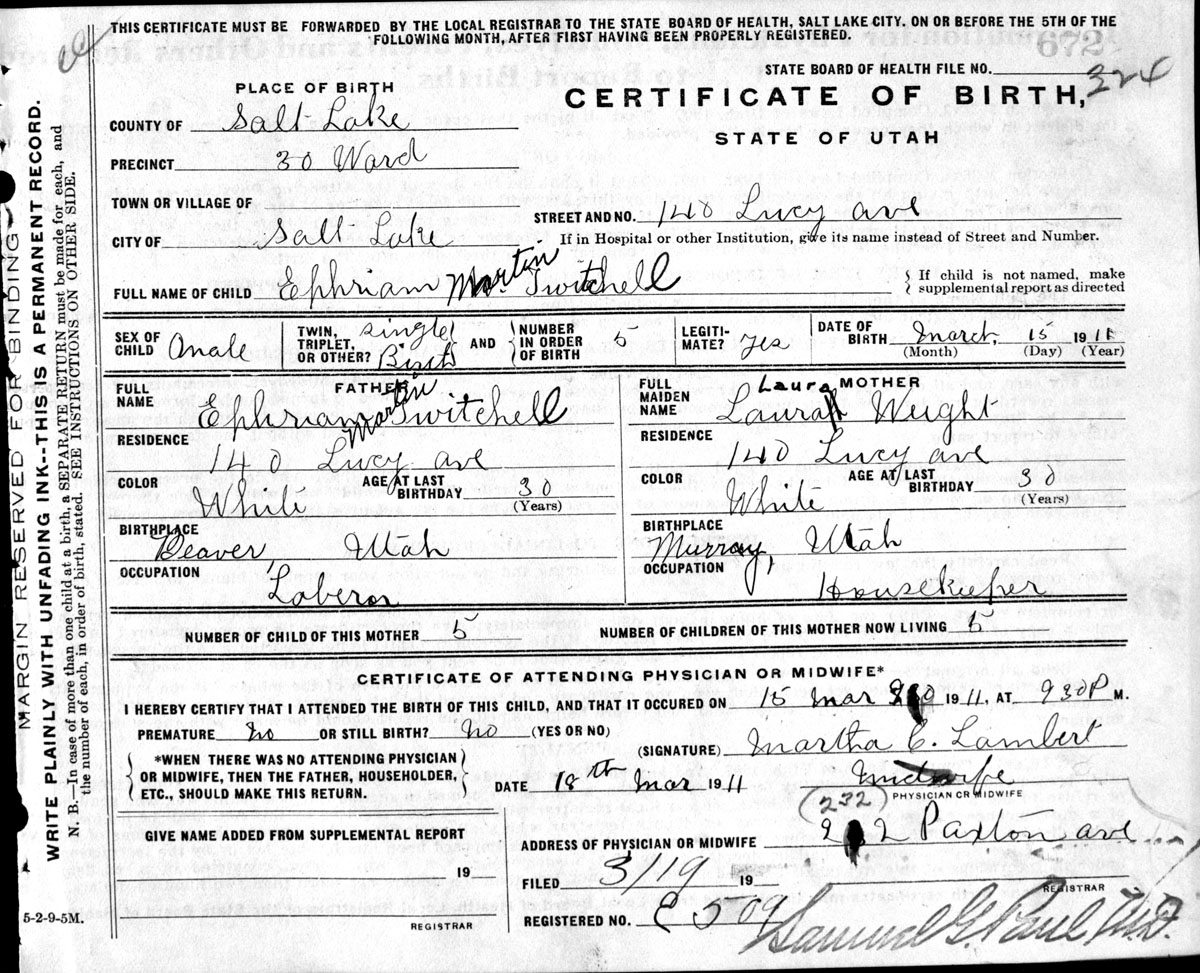 THIS CERTIFICATE MUST BE FORWARDED BY THE LOCAL REGISTRAR TO THE STATE BOARD OF HEALTH, SALT LAKE CITY. ON OR BEFORE THE 5TH OF THE
FOLLOWING MONTH, AFTER FIRST HAVING BEEN PROPERLY REGISTERED.
672
STATE BOARD OF HEALTH FILE NO. 324
PLACE OF BIRTH
CERTIFICATE OF BIRTH,
STATE OF UTAH
COUNTY OF Salt Lake
PRECINCT 30 Ward
TOWN OR VILLAGE OF
STREET AND NO. 140 Lucy ave
CITY OF Salt Lake
If in Hospital or other Institution, give its name instead of Street and Number.
FULL NAME OF CHILD Ephriam Martin Twitchell
If child is not named, make
supplemental report as directed
SEX OF CHILD male
TWIN, TRIPLET, OR OTHER? single Birth
AND NUMBER IN ORDER OF BIRTH 5
LEGITI-MATE? yes
DATE OF BIRTH March, 15 1911
(Month) (Day) (Year)
FATHER
FULL NAME Ephriam Martin Twitchell
RESIDENCE
140 Lucy ave
COLOR White
AGE AT LAST BIRTHDAY 30
(Years)
BIRTHPLACE
Beaver, Utah
OCCUPATION
Laberor
Laura MOTHER
FULL MAIDEN NAME Laura Weight
RESIDENCE
140 Lucy ave
COLOR White
AGE AT LAST BIRTHDAY 30
(Years)
BIRTHPLACE
Murray, Utah
OCCUPATION
Housekeeper
NUMBER OF CHILD OF THIS MOTHER 5
NUMBER OF CHILDREN OF THIS MOTHER NOW LIVING 5
CERTIFICATE OF ATTENDING PHYSICIAN OR MIDWIFE*
I HEREBY CERTIFY THAT I ATTENDED THE BIRTH OF THIS CHILD, AND THAT IT OCCURED ON 15 Mar 1911, AT 930 P M.
PREMATURE No OR STILL BIRTH? No (YES OR NO)
(SIGNATURE) Martha C. Lambert
*WHEN THERE WAS NO ATTENDING PHYSICIAN
OR MIDWIFE, THEN THE FATHER, HOUSEHOLDER,
ETC., SHOULD MAKE THIS RETURN.
DATE 18th Mar 1911
Midwife
PHYSICIAN OR MIDWIFE
232
ADDRESS OF PHYSICIAN OR MIDWIFE 2 2 Paxton ave
GIVE NAME ADDED FROM SUPPLEMENTAL REPORT
19
REGISTRAR
FILED 3/19 19
REGISTRAR
REGISTERED NO.
Samuel G. Paul M.D.
5-2-9-5M.
MARGIN RESERVED FOR BINDING
WRITE PLAINLY WITH UNFADING INK--THIS IS A PERMANENT RECORD.
N. B.—In case of more than one child at a birth, a SEPARATE RETURN must be made for each, and
the number of each, in order of birth, stated. SEE INSTRUCTIONS ON OTHER SIDE.